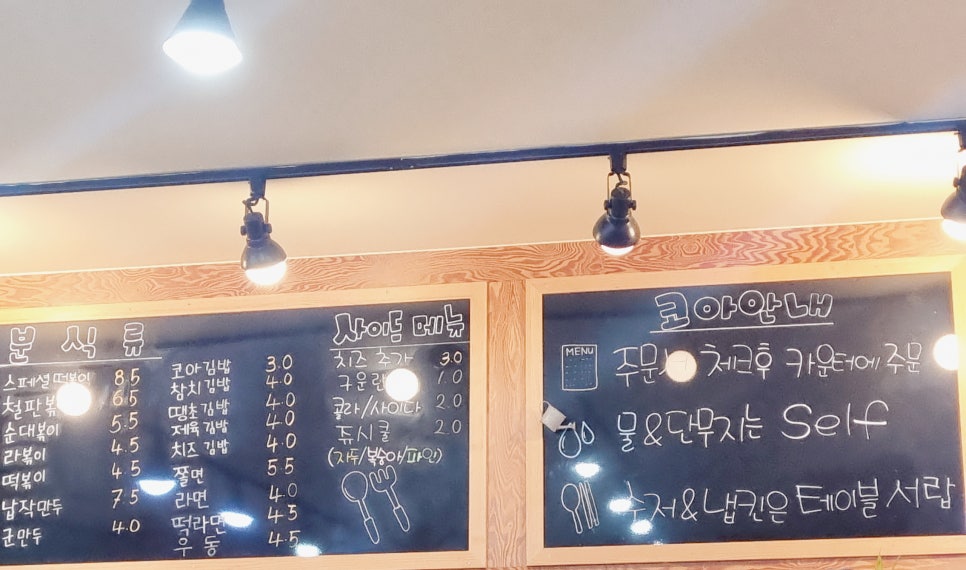 분식류
스페셜 떡볶이 8.5
철판볶 6.5
순대볶이 5.5
라볶이 4.5
떡볶이 4.5
납작만두 7.5
군만두 4.0
코아김밥 3.0
참치김밥 4.0
땡초김밥 4.0
제육김밥 4.0
치즈김밥 4.0
쫄면 5.5
라면 4.0
떡라면 4.5
우동 4.5
사이드 메뉴
치즈 추가 3.0
구운 1.0
콜라/사이다 2.0
쥬시쿨 2.0
(자두/복숭아/파인)
코아안내
MENU
주문 체크후 카운터에 주문
물&단무지는 Self
수저&냅킨은 테이블 서랍